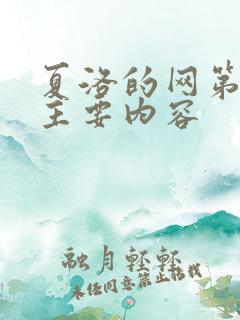 夏洛的网第
主要内容
融月轻轻
未经同意禁止搭载